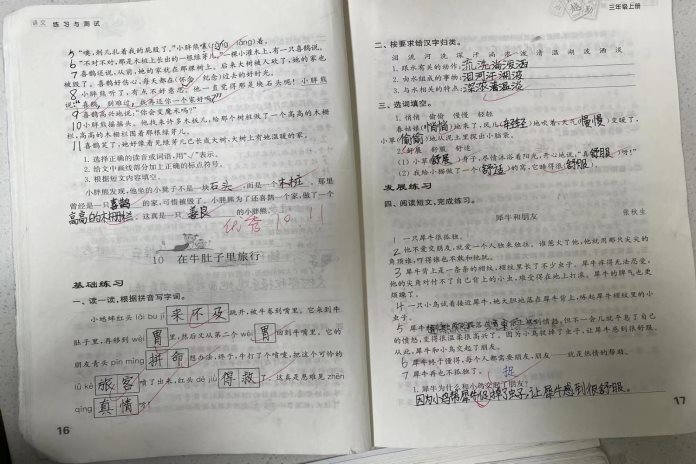 语文 练习与测试
5 "噢,刺儿扎着我的屁股了。"小胖熊嚷(rāng rǎng)着。
6 "不对不对,那是木桩上长出的一根绿芽儿。"一棵小灌木上,有一只喜鹊说。
7 喜鹊还说,从前,她的家就在那棵树上。后来大树被人砍了,她的家也
被毁了。喜鹊好伤心,每天都在(怀念 纪念)过去的好时光。
8 小胖熊听了,有点不好意思。他一直觉得那是块石头呢!小胖熊
说:"喜鹊,别难过,我再还你一个家好吗?"
9 喜鹊高兴地说:"你会变魔术吗?"
10 小胖熊摇摇头。他找来许多木枝儿,给那个树桩做了一个高高的木栅
栏,高高的木栅栏围着那根绿芽儿。
11 喜鹊笑了,她好像看见绿芽儿已长成大树,大树上有她温暖的家。
1. 选择正确的读音或词语,用"√"表示。
2. 给文中画线部分加上正确的标点符号。
3. 根据短文内容填空。
小胖熊发现,他坐的小凳子不是一块石头,而是一个木桩。那里
曾经是一只喜鹊的家,可惜被毁了。小胖熊为了还喜鹊一个家,做了一个
高高的木栅栏。这真是一只善良的小胖熊。
优秀 10.11
10 在牛肚子里旅行
基础练习
一、读一读,根据拼音写字词。
小地蚌红头 lái bu jí 来不及 跳开,被牛卷到嘴里。它来到牛
肚子里,再移到 wèi 胃 里,然后又从第二个 wèi 胃 回到牛嘴里。它的
朋友青头 pīn mìng 拼命 想办法,终于,牛打了个喷嚏,把这个可怜的
lǚ kè 旅客 喷了出来,红头 dé jiù 得救 了。这真是患难见 zhēn
qíng 真情 呀!
16
三年级上册
二、按要求给汉字归类。
泪 流 河 洗 深 汗 海 浓 泼 清 温 湖 波 洒 淡
1. 跟水有关的动作:流洗泼洒
2. 由水组成的事物:泪河汗湖波
3. 与水相关的特点:深浓清温淡
三、选词填空。
1. 悄悄 偷偷 慢慢 轻轻
春姑娘(悄悄)地来了,风儿(轻轻)地吹着,天气(慢慢)变暖了,
小草(偷偷)地从泥土里探出小脑袋。
2. 舒展 舒服 舒适
(1) 小草(舒展)身子,尽情沐浴着阳光,开心地说:"真(舒服)呀!"
(2) 我给小猫做了一个(舒适)的窝,它睡得很(舒服)。
发展练习
四、阅读短文,完成练习。
犀牛和朋友
张秋生
1 一只犀牛很孤独。
2 他不爱交朋友,就爱一个人独来独往。谁惹火了他,他就用那只尖尖的
角顶谁,吓得谁也不敢和他玩。
3 犀牛背上是一条条的褶纹,褶纹里长了不少虫子。犀牛痒得无法忍受,
他的尖角对付不了自己背上的小虫,难受得在地上打滚。犀牛的脾气也更
烦躁了。
4 一只小鸟试着接近犀牛,她大胆地落在犀牛背上,啄起犀牛褶纹里的小
虫子。
5 犀牛
的愤怒,变得很温柔很高兴了。因为小鸟捉掉了虫子,让犀牛感到很舒服。
从此,犀牛和小鸟交起了朋友。
6 犀牛终于懂得,每个人都需要朋友,朋友——就是热情的帮助。
7 犀牛再也不孤独了。
捉
1. 犀牛为什么和小鸟交起了朋友?
因为小鸟帮犀牛捉掉了虫子,让犀牛感到很舒服。
17